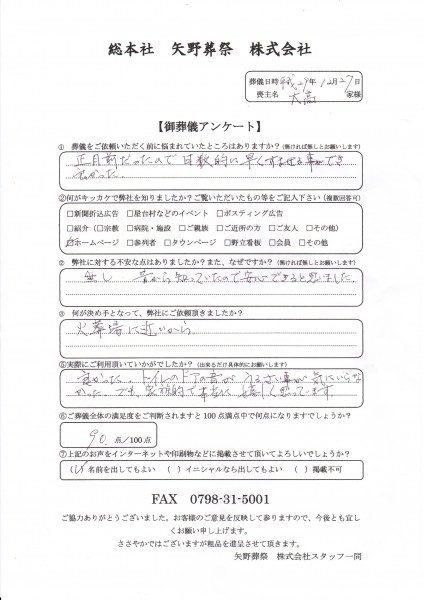 総本社 矢野葬祭 株式会社
葬儀日時 平成29年12月27日
喪主名 大高 家様
【御葬儀アンケート】
① 葬儀をご依頼いただく前に悩まれていたところはありますか?(無ければ無しとお願いします)
正月前だったので日数的に早くすませる事ができ
良かった
②何がキッカケで弊社を知りましたか?ご覧いただいたもの等をご記入下さい(複数回答可)
□新聞折込広告 □屋台村などのイベント □ポスティング広告
□紹介(□宗教 □病院・施設 □ご親族 □ご近所の方 □ご友人 □その他)
☑ホームページ □参列者 □タウンページ □野立看板 □会員 □その他
② 弊社に対する不安な点はありましたか?また、なぜですか?(無ければ無しとお願いします)
無し 昔から知っていたので安心できると思いました。
③ 何が決め手となって、弊社にご依頼頂きましたか?
火葬場に近いから
⑤実際にご利用頂いていかがでしたか?(出来るだけ具体的にお願いします)
良かった。トイレのドアの音がうるさい事が気にいらな
かった。でも、家族的で本当に嬉しく思っています。
⑥ご葬儀全体の満足度をご判断されますと100点満点中で何点になりますでしょうか?
90 点/100点
⑦上記のお声をインターネットや印刷物などに掲載させて頂いてよろしいでしょうか?
(✓)名前を出してもよい ( )イニシャルなら出してもよい ( )掲載不可
FAX 0798-31-5001
ご協力ありがとうございました。お客様のご意見を反映して参りますので、今後とも宜し
くお願い申し上げます。
ささやかではございますが粗品を進呈させて頂きます。
矢野葬祭 株式会社スタッフ一同